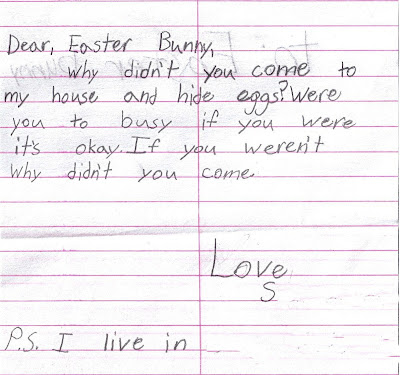 Dear, Easter Bunny,
Why didn't you come to
my house and hide eggs? Were
you to busy if you were
it's okay. If you weren't
why didn't you come
Love
S
P.S. I live in